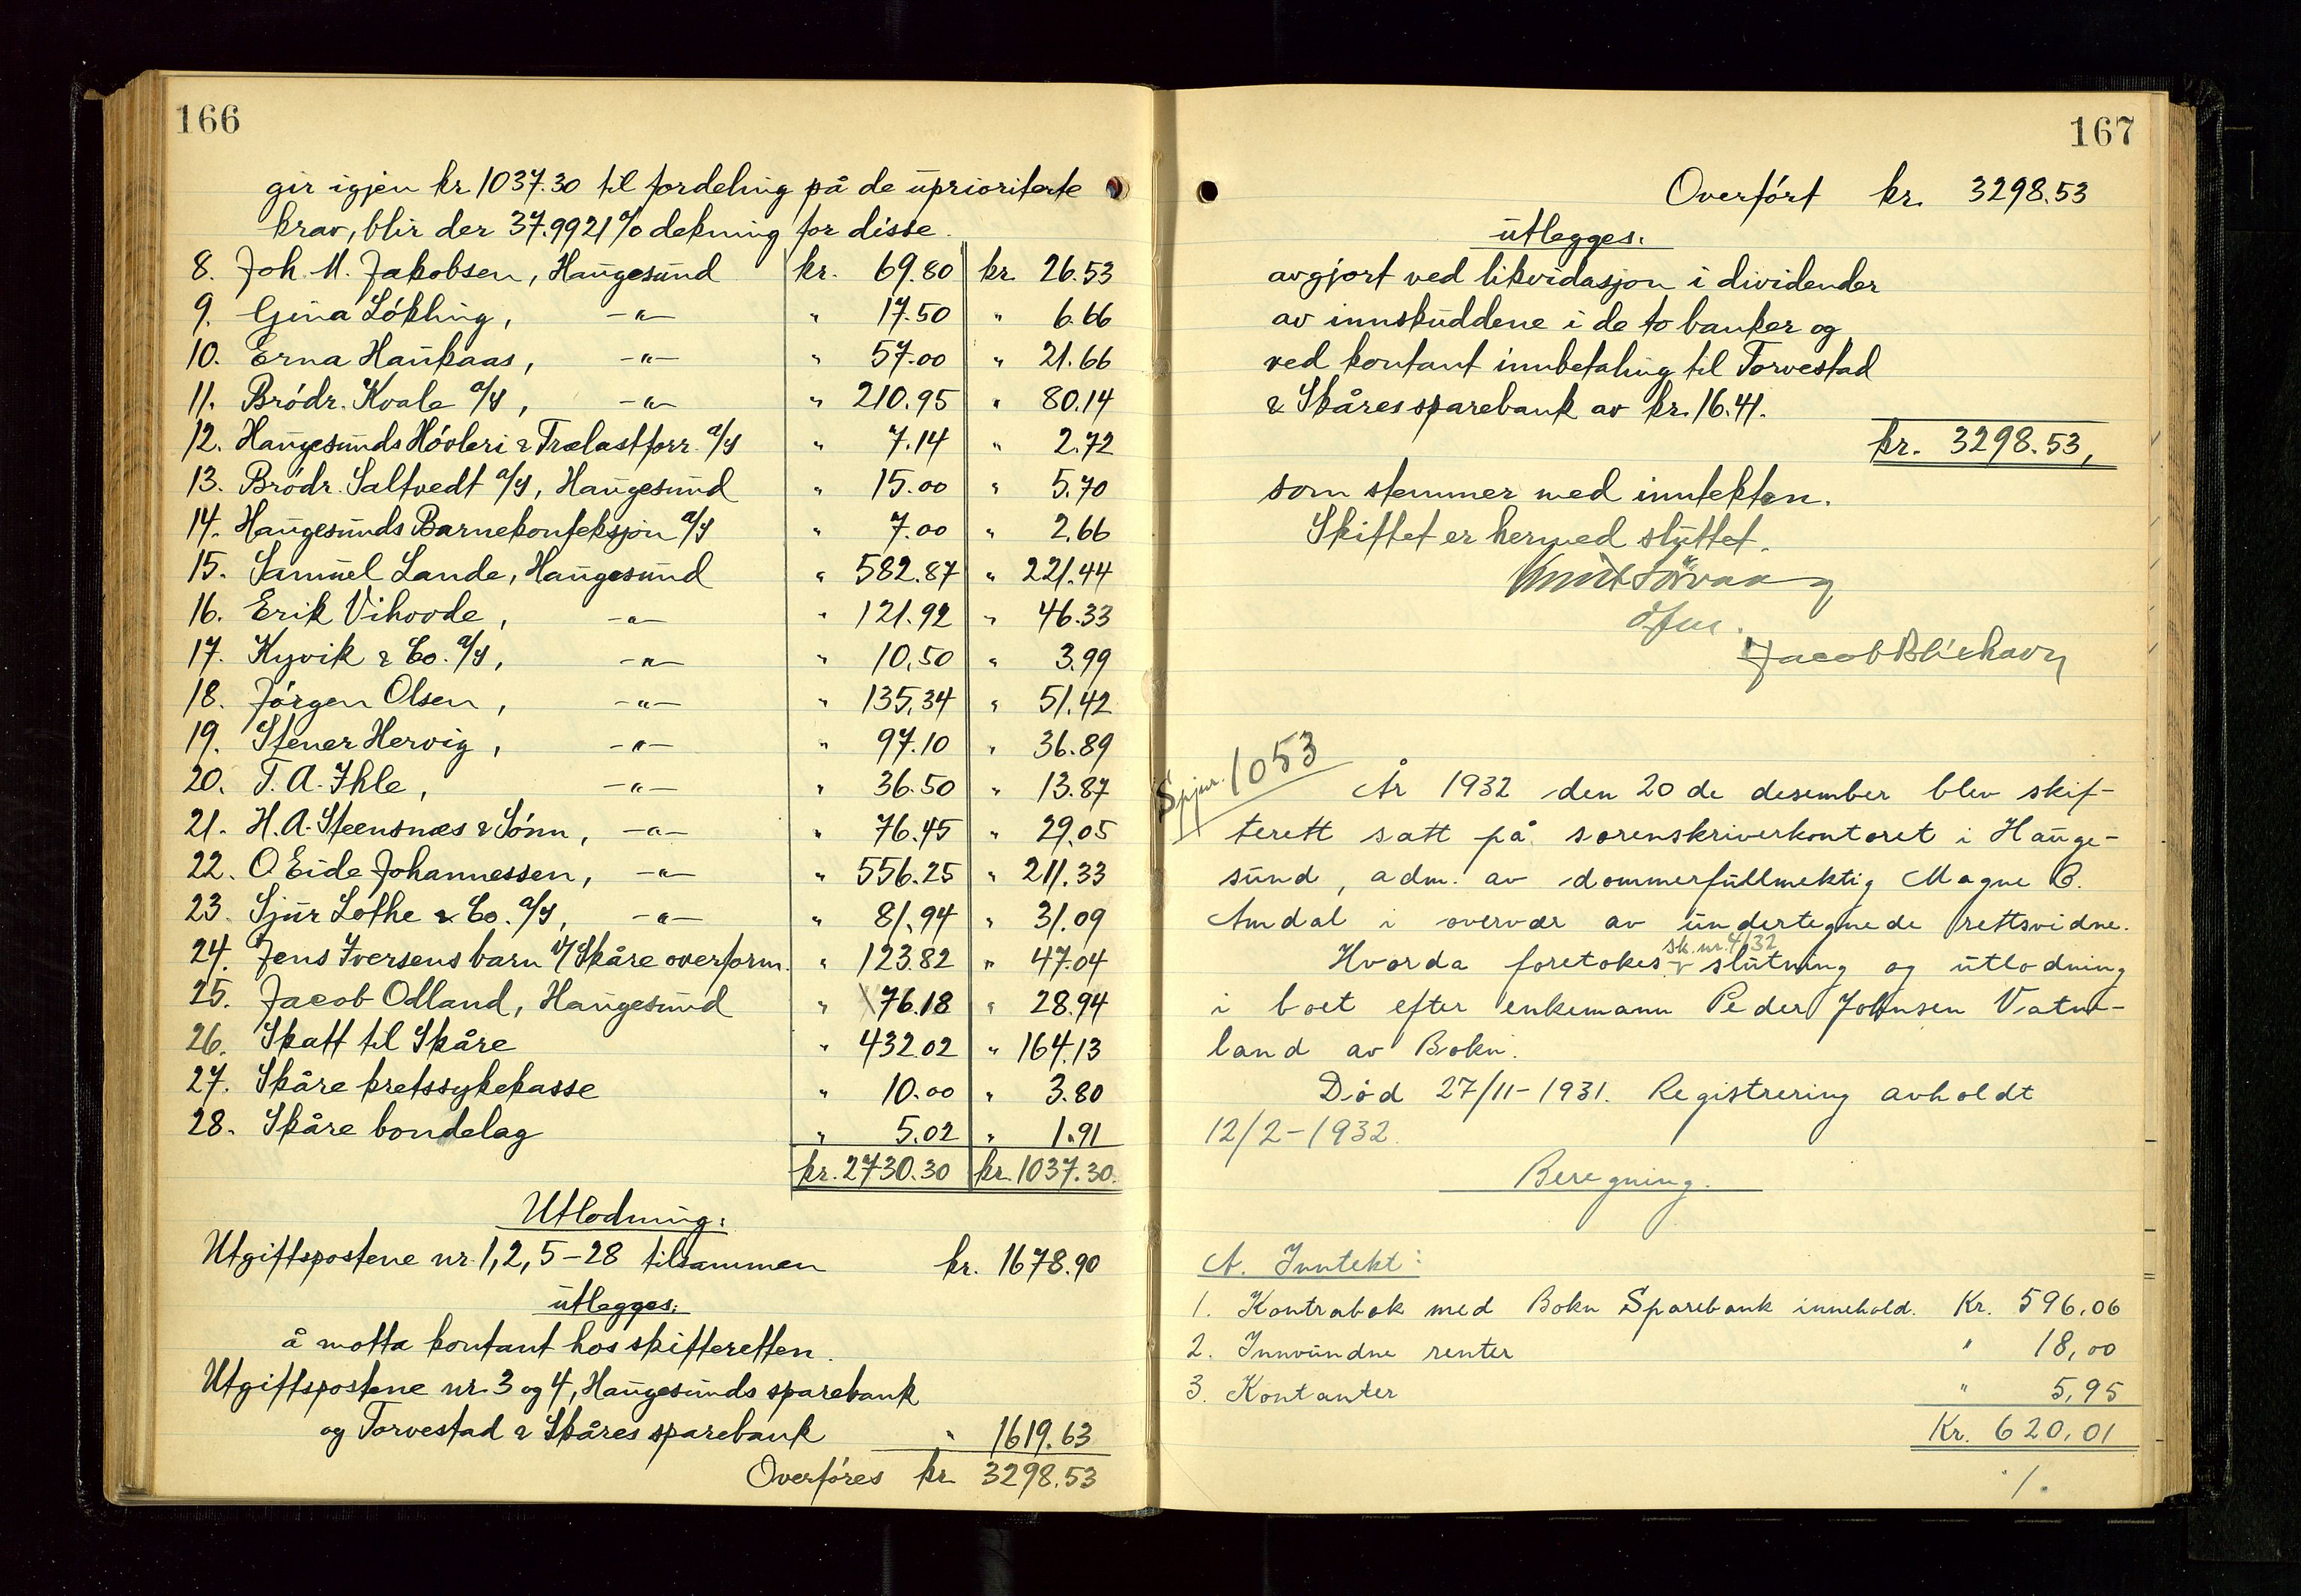 166
gir igjen kr 1037.30 til fordeling på de uprioriterte
krav, blir der 37.9921 % dekning for disse.
8. Joh. M. Jakobsen, Haugesund kr. 69.80 kr. 26.53
9. Gina Lökling, -"- " 17.50 " 6.66
10. Erna Haukaas, -"- " 57.00 " 21.66
11. Brödr. Kvale a/s, -"- " 210.95 " 80.14
12. Haugesunds Hövleri & Trælastforr. a/s " 7.14 " 2.72
13. Brödr. Saltvedt a/s, Haugesund " 15.00 " 5.70
14. Haugesunds Barnekonfeksjon a/s " 7.00 " 2.66
15. Samuel Lande, Haugesund " 582.87 " 221.44
16. Erik Vihovde, -"- " 121.92 " 46.33
17. Kyvik & Co. a/s, -"- " 10.50 " 3.99
18. Jörgen Olsen, -"- " 135.34 " 51.42
19. Stener Hervig, -"- " 97.10 " 36.89
20. T. A. Ihle, -"- " 36.50 " 13.87
21. H. A. Steensnæs & Sönn, -"- " 76.45 " 29.05
22. O Eide Johannessen, -"- " 556.25 " 211.33
23. Sjur Lothe & Co. a/s, -"- " 81.94 " 31.09
24. Jens Iversens barn v/ Skåre overform. " 123.82 " 47.04
25. Jacob Odland, Haugesund " 76.18 " 28.94
26. Skatt til Skåre " 432.02 " 164.13
27. Skåre kretssykekasse " 10.00 " 3.80
28. Skåre bondelag " 5.02 " 1.91
kr. 2730.30 kr. 1037.30.
Utlodning:
Utgiftspostene nr. 1, 2, 5-28 tilsammen kr. 1678.90
utlegges:
å motta kontant hos skifteretten.
Utgiftspostene nr. 3 og 4, Haugesunds sparebank
og Torvestad & Skåres sparebank " 1619.63
Overföres kr. 3298.53
167
Overfört kr. 3298.53
utlegges:
avgjort ved likvidasjon i dividender
av innskuddene i de to banker og
ved kontant innbetaling til Torvestad
& Skåres sparebank av kr. 16.41.
kr. 3298.53,
som stemmer med inntekten.
Skiftet er hermed sluttet.
Jacob
1053
År 1932 den 20 de desember blev skif-
terett satt på sorenskriverkontoret i Hauge-
sund, adm. av dommerfullmektig Magne B.
Amdal i overvær av undertegnede rettsvidne.
sk. nr. 4/32
Hvorda foretokes slutning og utlodning
i boet efter enkemann Peder Johnsen Vatne-
land av Bokn.
Död 27/11-1931. Registrering avholdt
12/2-1932.
Beregning.
A. Inntekt:
1. Kontrabok med Bokn Sparebank innehold. Kr. 596,06
2. Innvundne renter " 18,00
3. Kontanter " 5,95
Kr. 620,01
./.